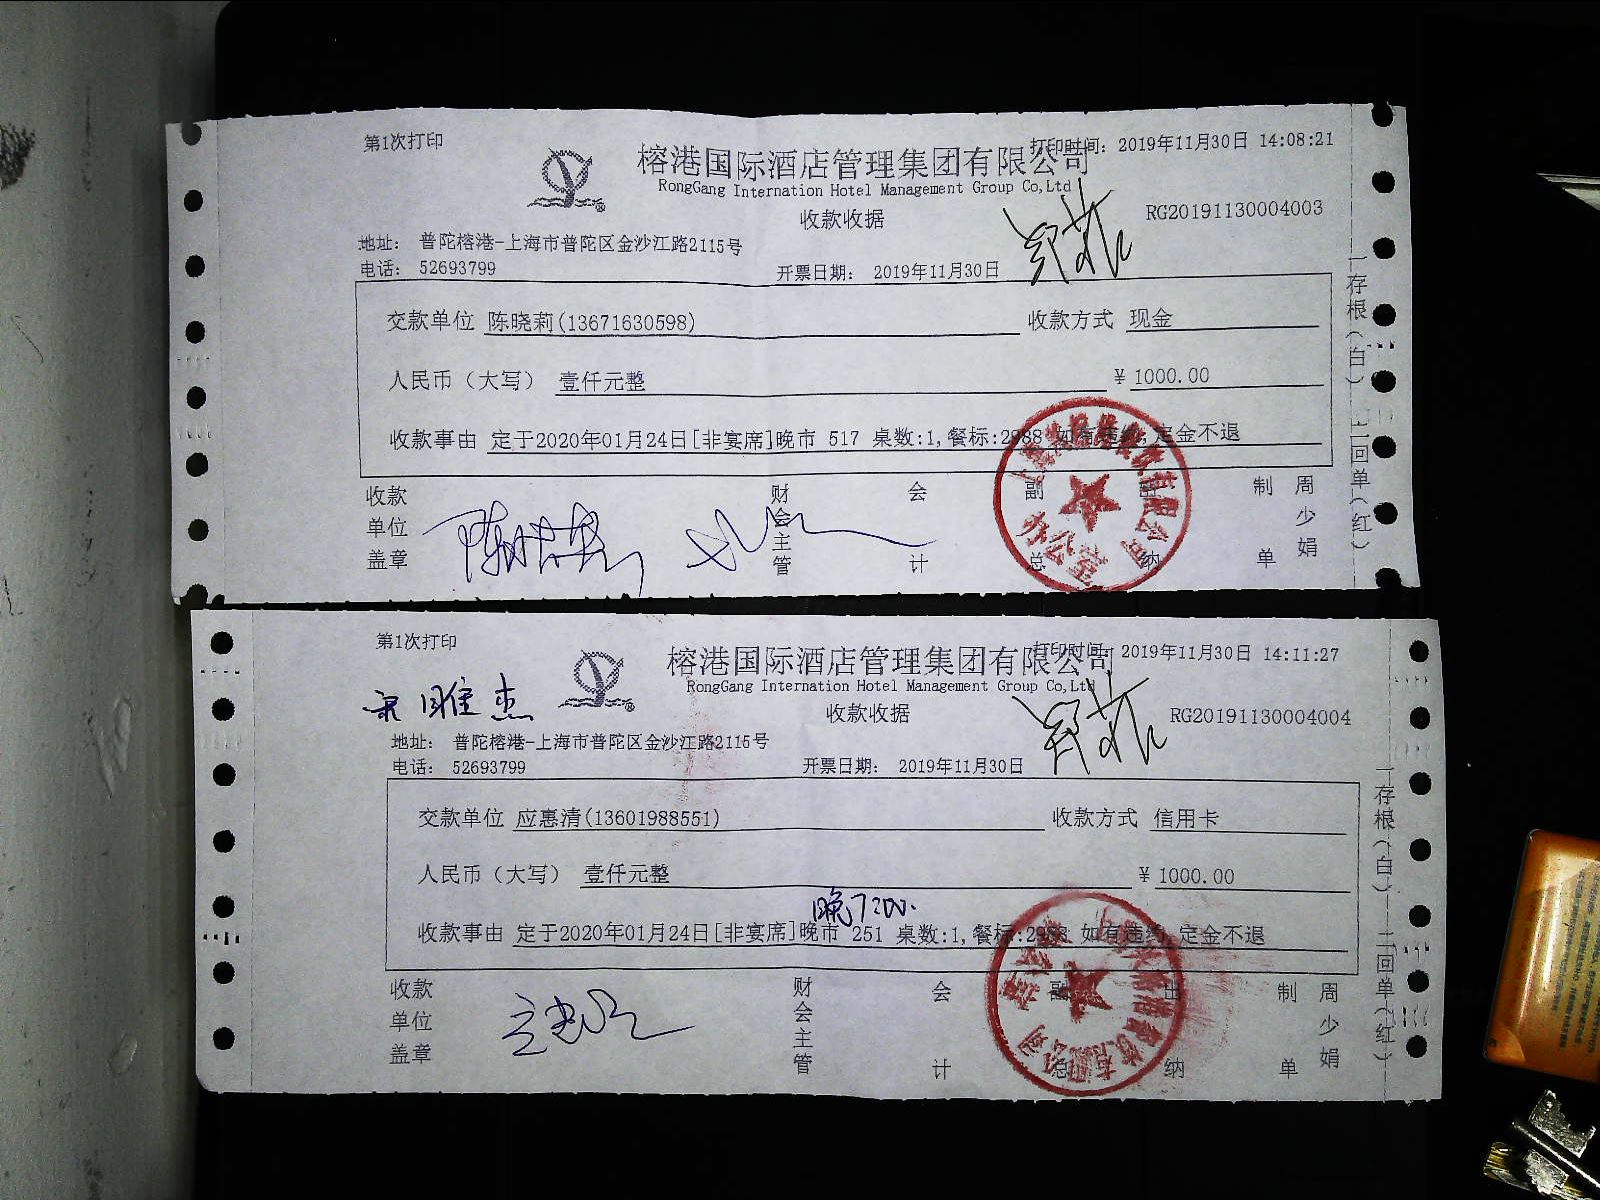 第1次打印
打印时间: 2019年11月30日 14:08:21
榕港国际酒店管理集团有限公司
RongGang Internation Hotel Management Group Co,Ltd
收款收据
RG20191130004003
郑花
地址: 普陀榕港-上海市普陀区金沙江路2115号
电话: 52693799
开票日期: 2019年11月30日
交款单位 陈晓莉(13671630598) 收款方式 现金
人民币（大写） 壹仟元整 ¥ 1000.00
收款事由 定于2020年01月24日[非宴席]晚市 517 桌数:1,餐标:2988 如有违约,定金不退
收款单位盖章 财会主管 会计 副总 出纳 制单 周少娟
办公室
一存根（白） 二回单（红）
第1次打印
打印时间: 2019年11月30日 14:11:27
榕港国际酒店管理集团有限公司
RongGang Internation Hotel Management Group Co,Ltd
收款收据
RG20191130004004
地址: 普陀榕港-上海市普陀区金沙江路2115号
电话: 52693799
开票日期: 2019年11月30日
交款单位 应惠清(13601988551) 收款方式 信用卡
人民币（大写） 壹仟元整 ¥ 1000.00
晚7:00.
收款事由 定于2020年01月24日[非宴席]晚市 251 桌数:1,餐标:2988 如有违约,定金不退
收款单位盖章 财会主管 会计 副总 出纳 制单 周少娟
一存根（白） 二回单（红）